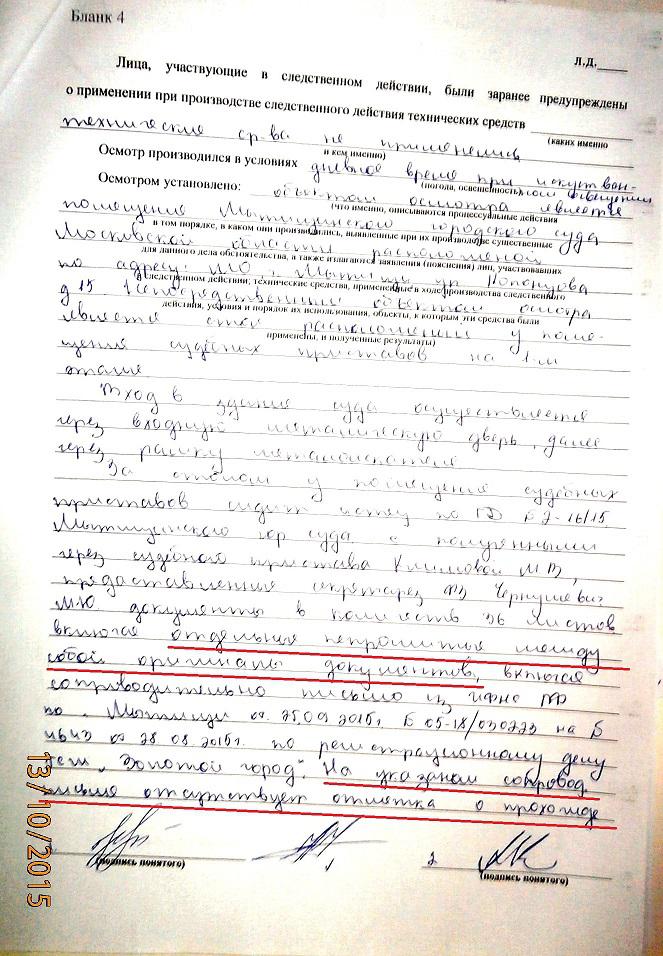 Бланк 4
Л.Д.____
Лица, участвующие в следственном действии, были заранее предупреждены
о применении при производстве следственного действия технических средств
технические ср-ва не применялись
(каких именно
и кем именно)
Осмотр производился в условиях дневное время при искуствен-
ном освещении
(погода, освещенность)
Осмотром установлено: объектом осмотра является
(что именно, описываются процессуальные действия
помещение Мытищинского городского суда
в том порядке, в каком они производились, выявленные при их производстве существенные
Московской области расположенной
для данного дела обстоятельства, а также излагаются заявления (пояснения) лиц, участвовавших
по адресу: МО г. Мытищи ул
следственном действии; технические средства, примененные в ходе производства следственного
д 15 Непосредственным объектом осмотра
действия, условия и порядок их использования, объекты, к которым эти средства были
является стол расположенный у поме-
применены, и полученные результаты)
щения судебных приставов на 1-м
этаже
Вход в здание суда осуществляется
через входную металическую дверь, далее
через рамку металоискателя
За столом у помещения судебных
приставов сидит истец по ГД 2-16/15
Мытищинского гор суда с полученными
через судебного пристава Климовой М В,
предоставленные секретарез ФЗ
М.Ю. документы в количеств 36 листов
включая отдельные непрошитые между
собой оригиналы документов, включая
сопроводительно письмо из ИФНС РФ
по г. Мытищи от 25.09 2015г № 05-18/030223 на №
от 28.08.2015г. по регистрационному делу
"Золотой город". На указаном сопровод.
письме отсутствует отметка о прохожде
1
2
(подпись понятого)
(подпись понятого)
13/10/2015